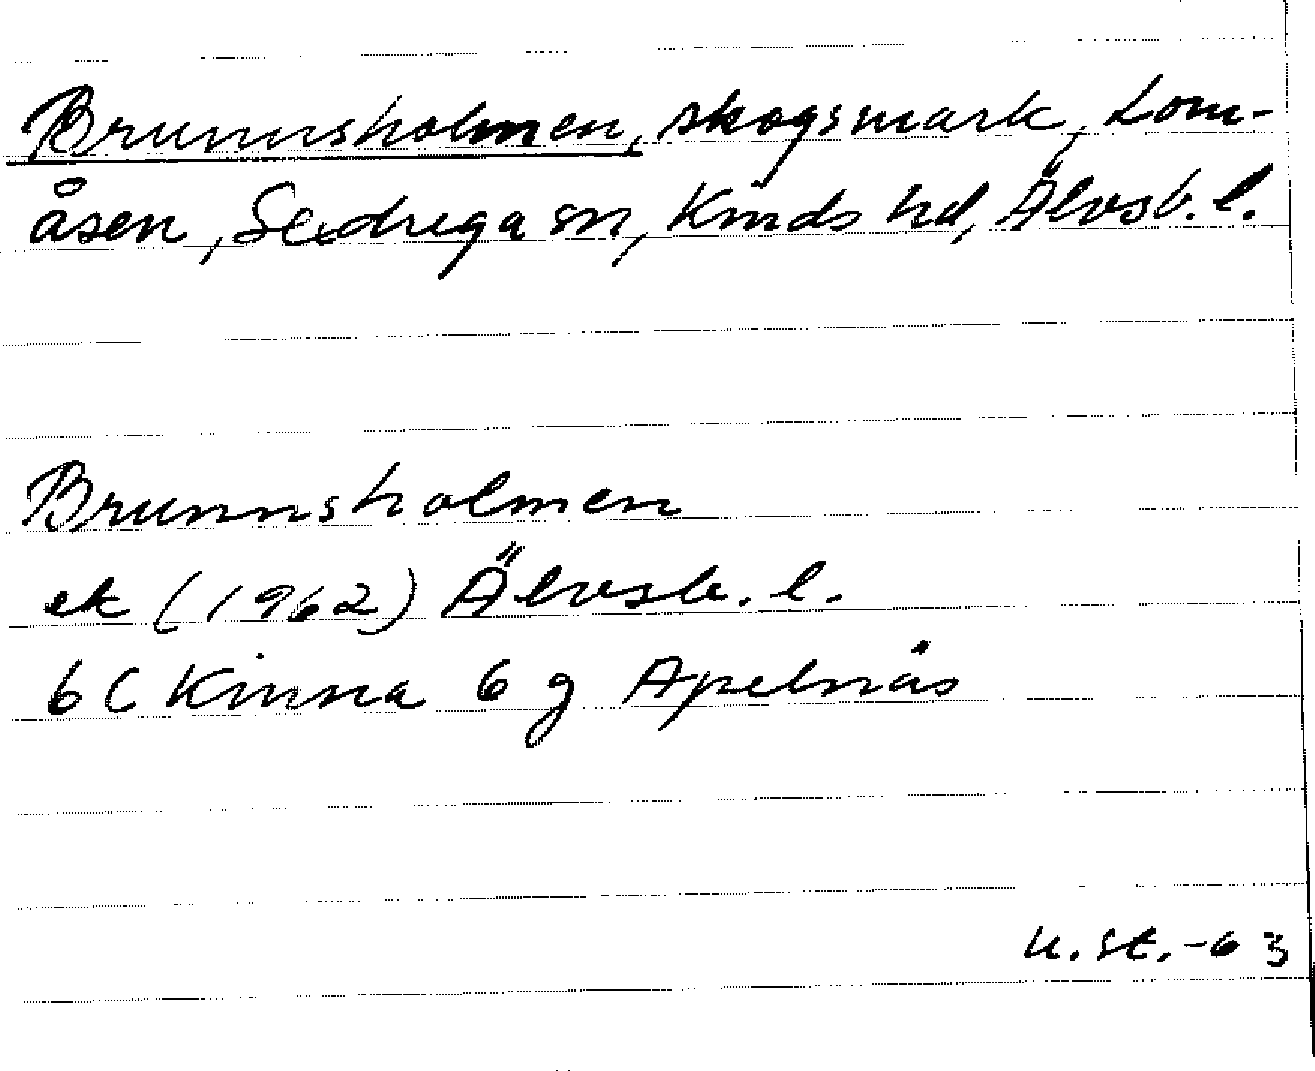 Brunnsholmen, skogsmark, Lom-
åsen, Sexdrega sn, Kinds hd, Älvsb. l.
Brunnsholmen
ek (1962) Älvsb. l.
6 C Kinna 6 g Apelnäs
u. st. -63